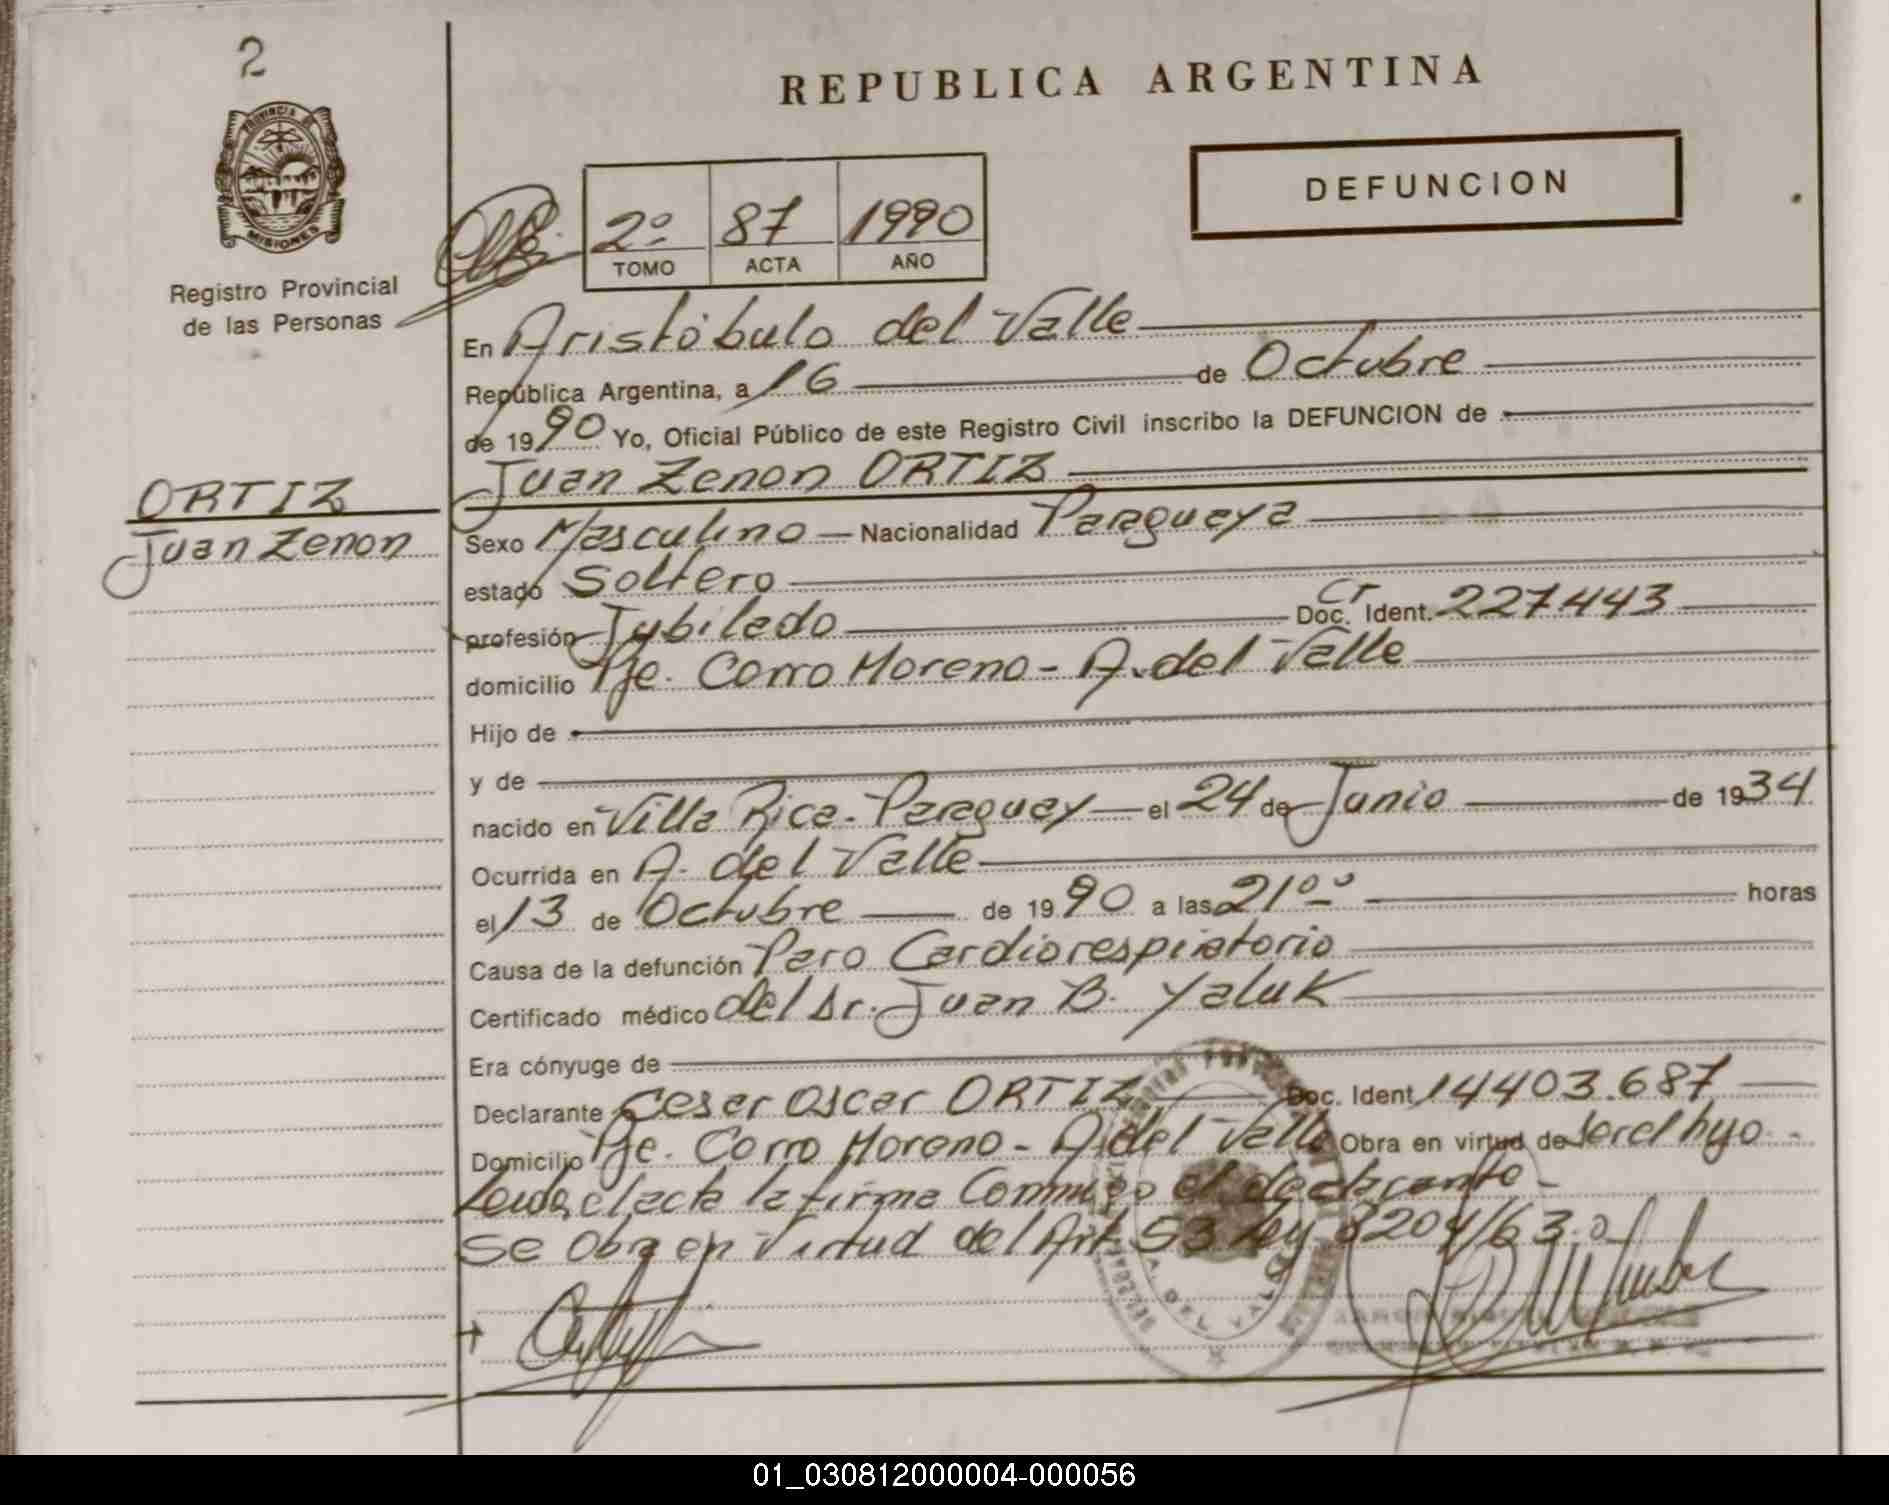 2
PROVINCIA DE
MISIONES
Registro Provincial
de las Personas
ORTIZ
Juan Zenon
REPUBLICA ARGENTINA
DEFUNCION
2º 87 1990
TOMO ACTA AÑO
En Aristóbulo del Valle
República Argentina, a 16 de Octubre
de 1990 Yo, Oficial Público de este Registro Civil inscribo la DEFUNCION de
Juan Zenon ORTIZ
Sexo Masculino — Nacionalidad Paraguaya
estado Soltero
profesión Jubilado Doc. Ident. 227.443
domicilio Pje. Corro Moreno - A. del Valle
Hijo de
y de
nacido en Villa Rica - Paraguay — el 24 de Junio de 1934
Ocurrida en A. del Valle
el 13 de Octubre de 1990 a las 21⁰⁰ horas
Causa de la defunción Paro Cardiorespiratorio
Certificado médico del Dr. Juan B. Yaluk
Era cónyuge de
Declarante Cesar Oscar ORTIZ Doc. Ident. 14403.687
Domicilio Pje. Corro Moreno - A. del Valle Obra en virtud de ser el hijo.-
Leida el acta la firma Conmigo el declarante -
Se Obra en Virtud del Art. 53 Ley 8204/63.
A. DEL VALLE
01_030812000004-000056